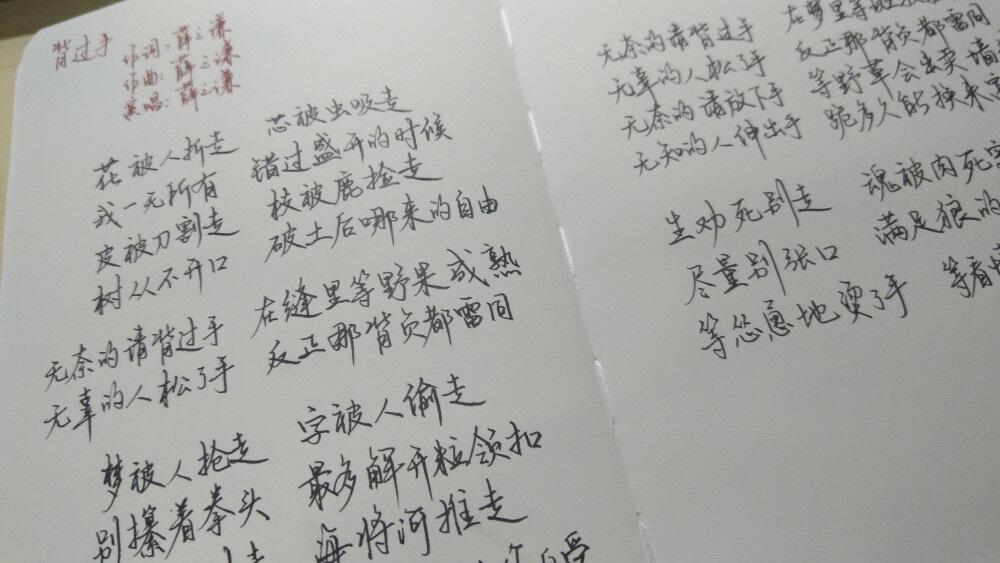 背过手
作词：薛之谦
作曲：薛之谦
演唱：薛之谦
花被人折走 芯被虫吸走
我一无所有 错过盛开的时候
皮被刀割走 枝被鹿捡走
树从不开口 破土后哪来的自由
无奈的请背过手 在缝里等野果成熟
无辜的人松了手 反正那背负都雷同
梦被人抢走 字被人偷走
别攥着拳头 最多解开粒领扣
走 海将河推走
受
无奈的请背过手 在梦里等
无辜的人松了手 反正那背负都雷同
无奈的请放下手 等野草会出卖
无知的人伸出手 跪多人能换来
生劝死别走 魂被肉死
尽量别张口 满足狼的
等怂恿地烫了手 等看